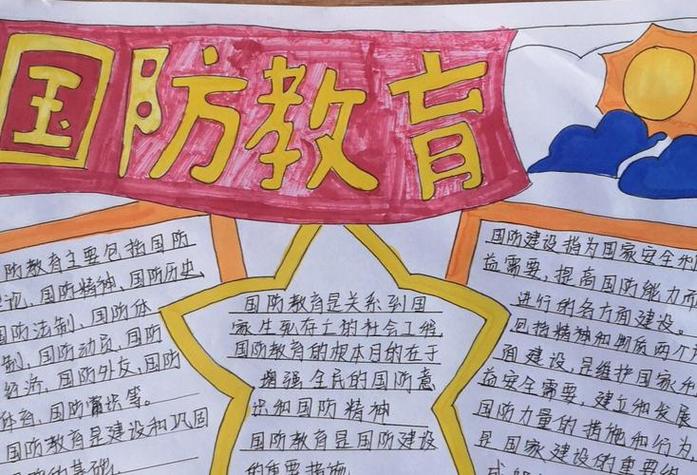 国防教育
防教育主要包括国防
国防精神、国防历史、
国防法制、国防体
制、国防动员、国防
经济、国防外交、国防
体育、国防常识等。
国防教育是建设和巩固
国防教育是关系到国
家生死存亡的社会工程
国防教育的根本目的在于
增强全民的国防意
识和国防精神
国防教育是国防建设
的重要措施
国防建设指为国家安全和
益需要,提高国防能力而
进行的各方面建设。
包括精神和物质两个
面建设,是维护国家
益安全需要,建立和发展
国防力量的措施和行为
是国家建设的重要